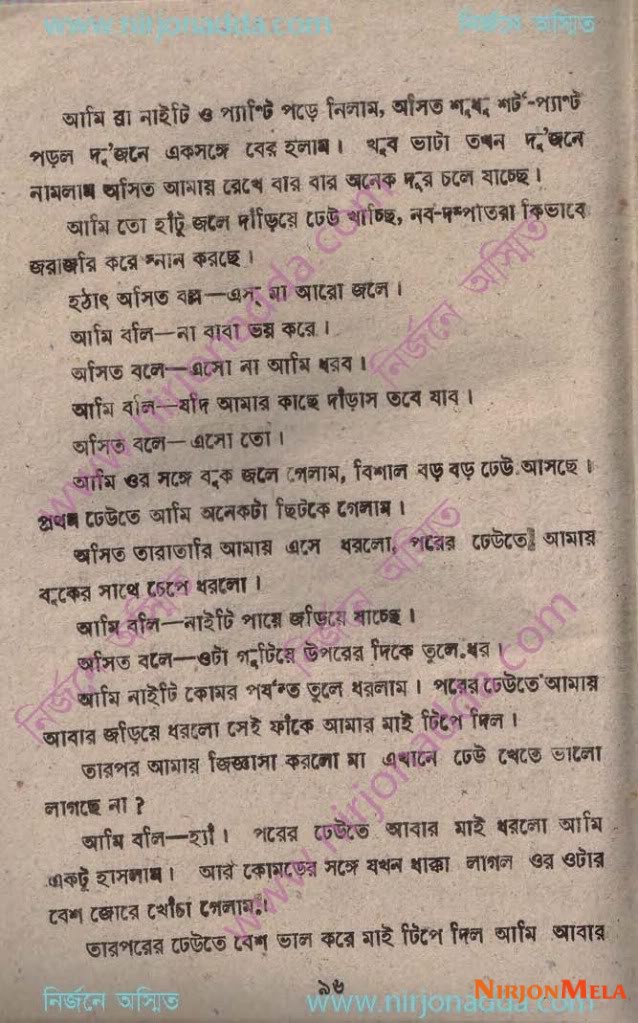 www.nirjonadda.com নির্জনে অস্মিত
আমি ব্রা নাইটি ও প্যান্টি পড়ে নিলাম, অসিত শুধু শর্ট-প্যান্ট
পড়ল দু'জনে একসঙ্গে বের হলাম। খুব ভাটা তখন দু'জনে
নামলাম অসিত আমায় রেখে বার বার অনেক দূর চলে যাচ্ছে।
আমি তো হাঁটু জলে দাঁড়িয়ে ঢেউ খাচ্ছি, নব-দম্পতিরা কিভাবে
জরাজরি করে স্নান করছে।
হঠাৎ অসিত বল্ল—এস মা আরো জলে।
আমি বলি—না বাবা ভয় করে।
অসিত বলে—এসো না আমি ধরব।
আমি বলি—যদি আমার কাছে দাঁড়াস তবে যাব।
অসিত বলে—এসো তো।
আমি ওর সঙ্গে বুক জলে গেলাম, বিশাল বড় বড় ঢেউ আসছে।
প্রথম ঢেউতে আমি অনেকটা ছিটকে গেলাম।
অসিত তারাতারি আমায় এসে ধরলো, পরের ঢেউতে আমায়
বুকের সাথে চেপে ধরলো।
আমি বলি—নাইটি পায়ে জড়িয়ে যাচ্ছে।
অসিত বলে—ওটা গুটিয়ে উপরের দিকে তুলে ধর।
আমি নাইটি কোমর পর্যন্ত তুলে ধরলাম। পরের ঢেউতে আমায়
আবার জড়িয়ে ধরলো সেই ফাঁকে আমার মাই টিপে দিল।
তারপর আমায় জিজ্ঞাসা করলো মা এখানে ঢেউ খেতে ভালো
লাগছে না?
আমি বলি—হ্যাঁ। পরের ঢেউতে আবার মাই ধরলো আমি
একটু হাসলাম। আর কোমড়ের সঙ্গে যখন ধাক্কা লাগল ওর ওটার
বেশ জোরে খোঁচা পেলাম।
তারপরের ঢেউতে বেশ ভাল করে মাই টিপে দিল আমি আবার
৯৬
NIRJONMELA
নির্জনে অস্মিত www.nirjonadda.com